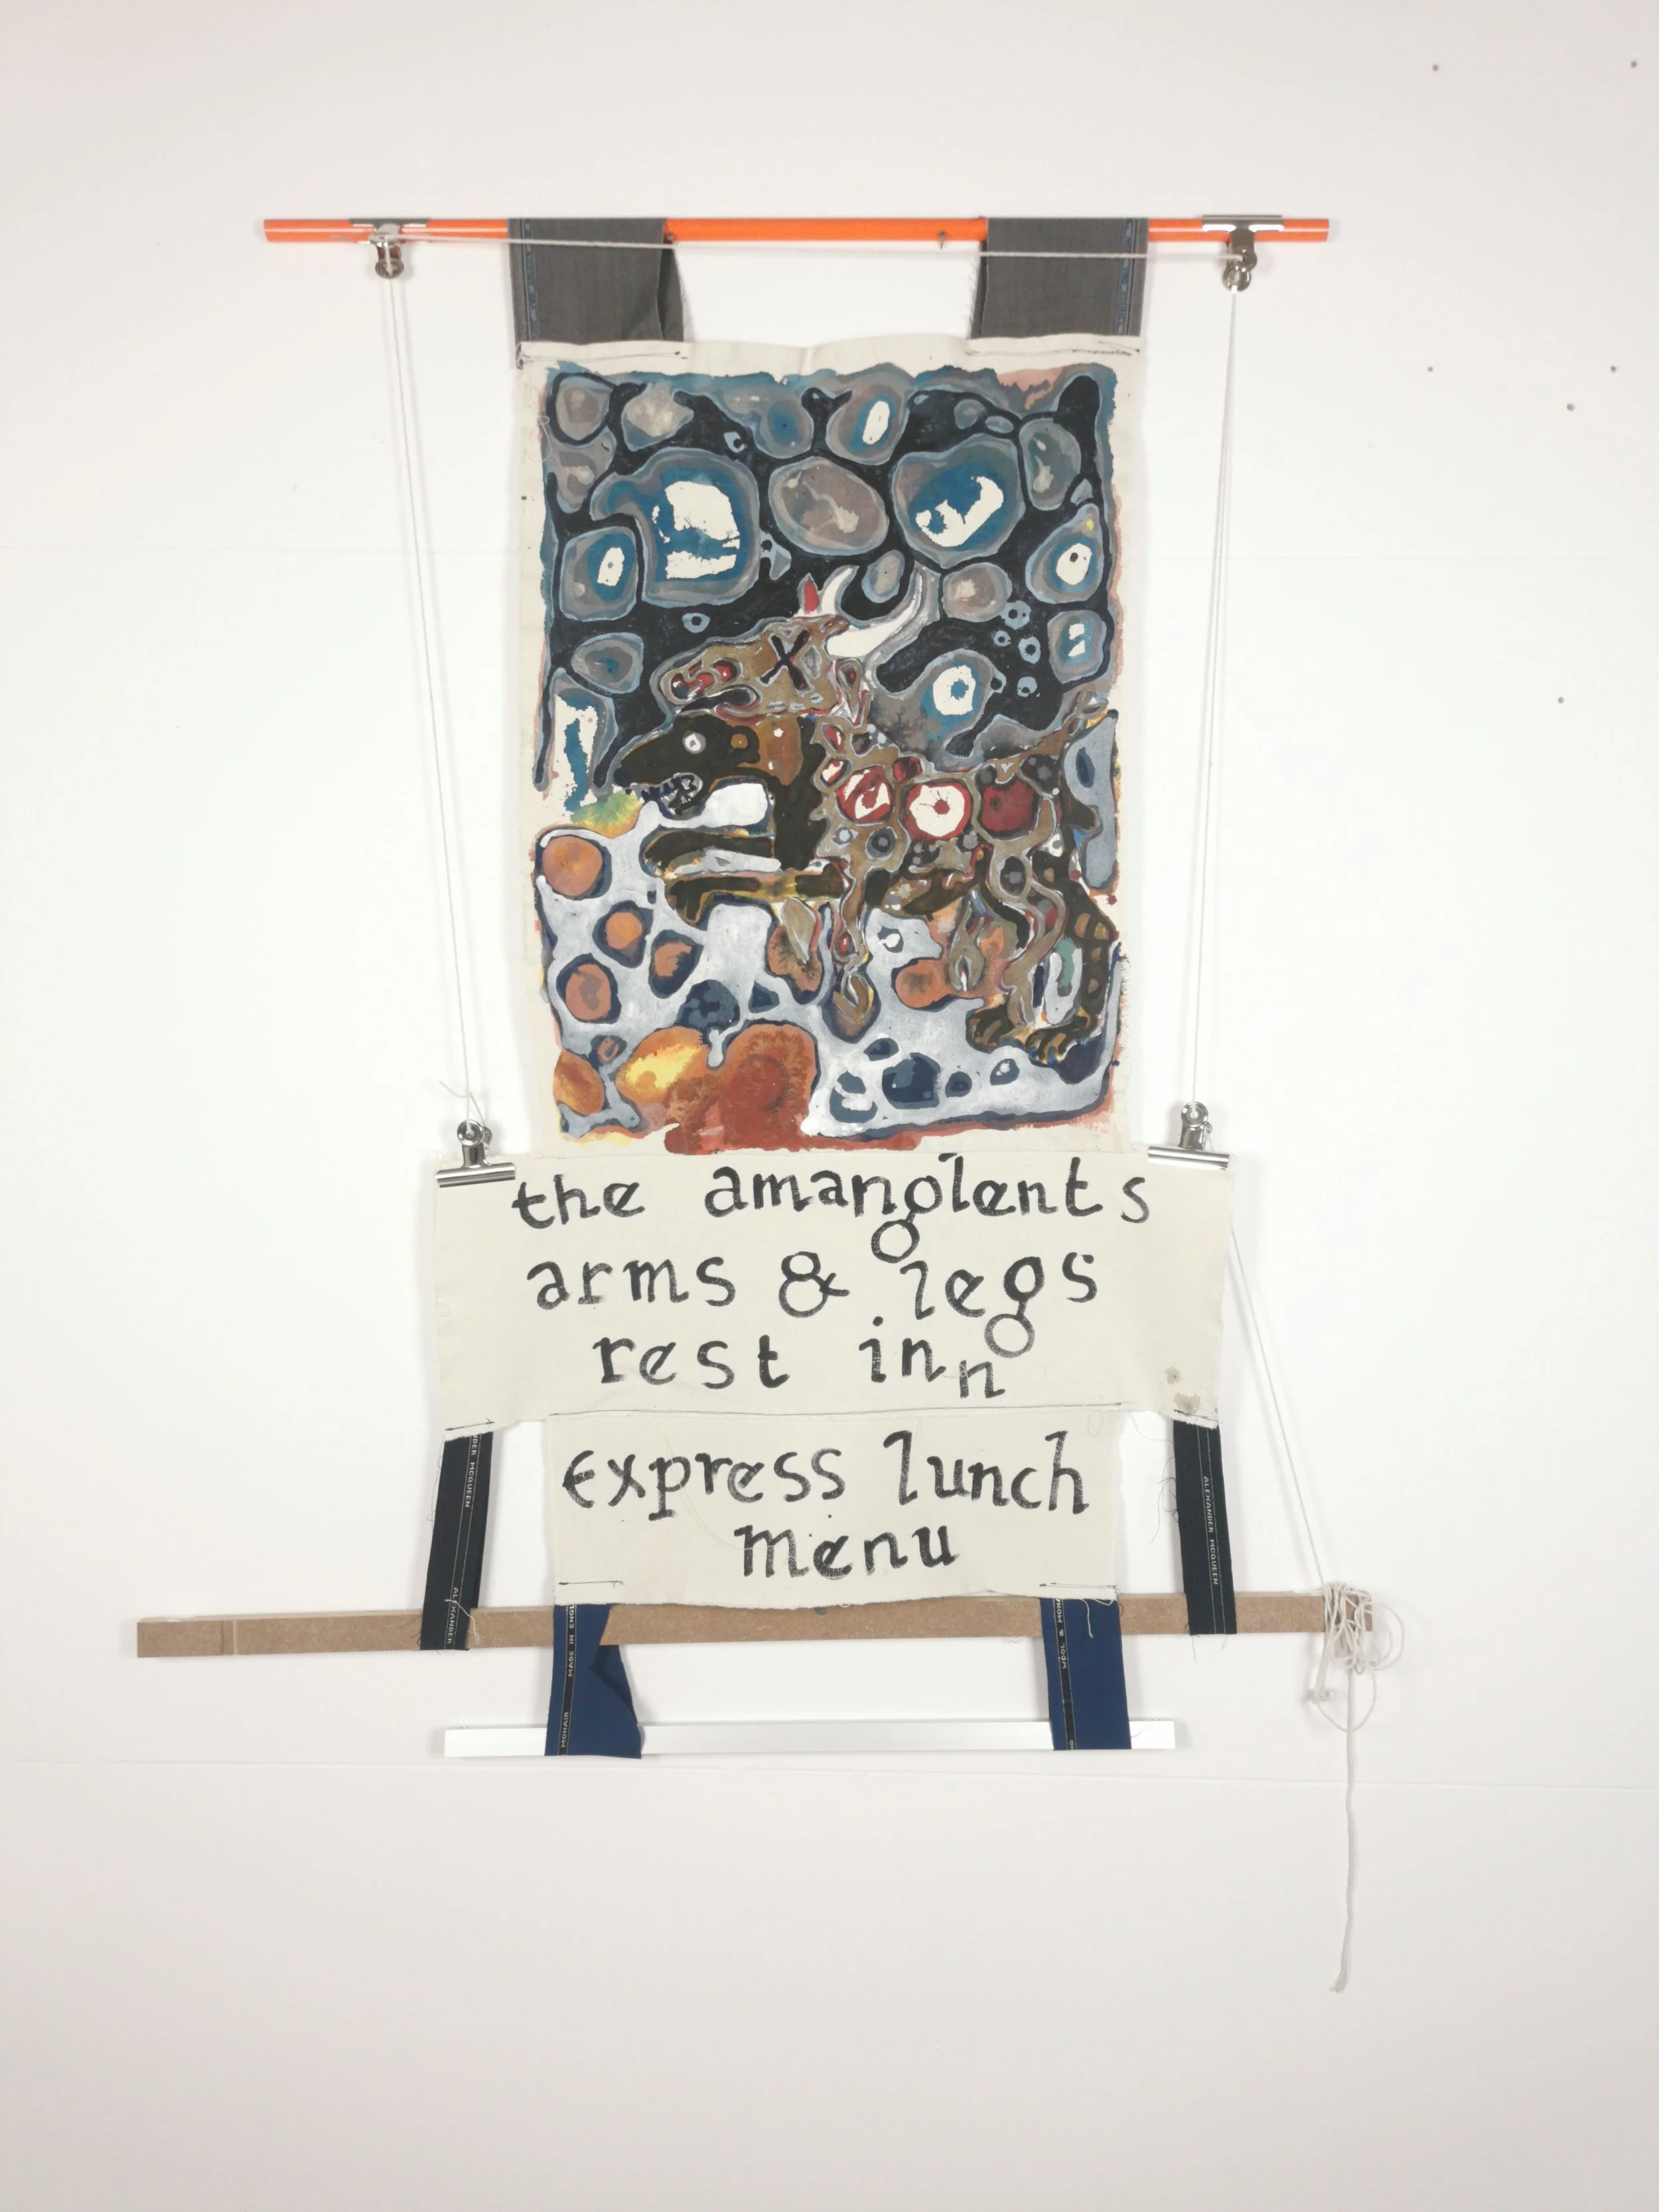 the amanglents
arms & legs
rest inn
express lunch
menu
ALEXANDER MCQUEEN
ALEXANDER
ALEXANDER MCQUEEN
MADE IN ENGL
MOHAIR
WOOL & MOHA